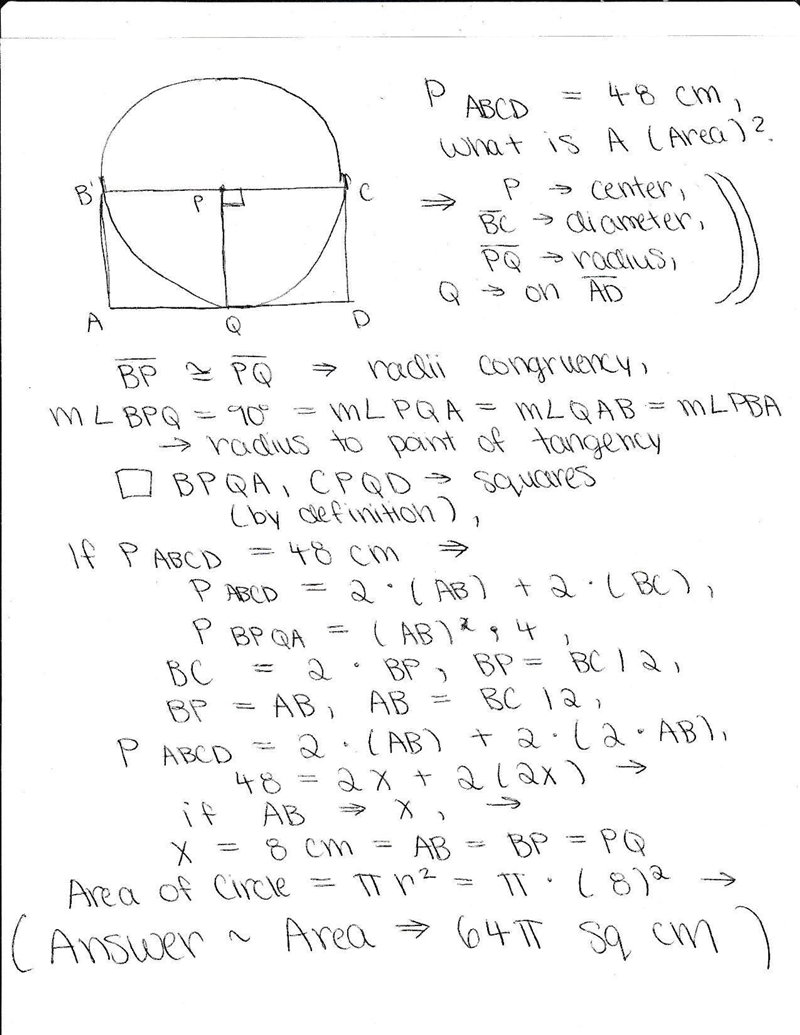 P ABCD = 48 cm,
What is A (Area)?
⇒ P → center,
B̅C̅ → diameter,
P̅Q̅ → radius,
Q → on A̅D̅
B P C
A Q D
B̅P̅ ≅ P̅Q̅ ⇒ radii congruency,
m∠BPQ = 90° = m∠PQA = m∠QAB = m∠PBA
→ radius to point of tangency
□ BPQA, CPQD → squares
(by definition),
If P ABCD = 48 cm ⇒
P ABCD = 2 · (AB) + 2 · (BC),
P BPQA = (AB) · 4,
BC = 2 · BP, BP = BC/2,
BP = AB, AB = BC/2,
P ABCD = 2 · (AB) + 2 · (2 · AB),
48 = 2x + 2(2x) →
if AB ⇒ x, →
x = 8 cm = AB = BP = PQ
Area of Circle = πr² = π · (8)² →
(Answer ~ Area ⇒ 64π sq cm)